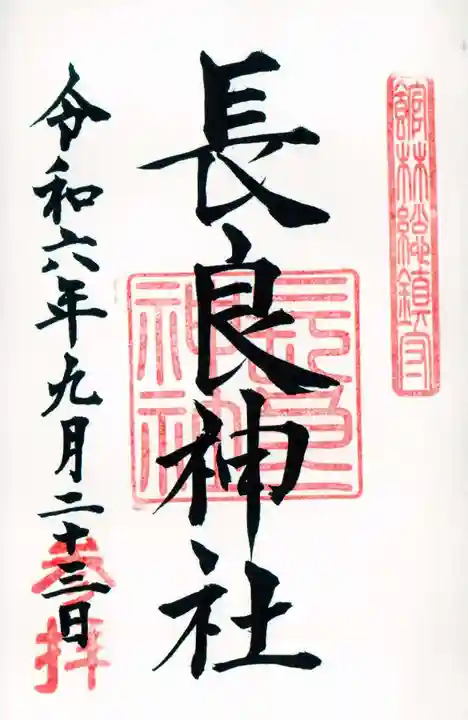 館林総鎮守
長良神社
長良
神社
令和六年九月二十三日
参拝